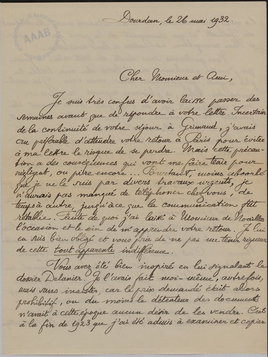 Dourdan, le 26 mai 1932
Cher Monsieur et Ami,
Je suis très confus d'avoir laissé passer des
semaines avant que de répondre à votre lettre. Incertain
de la continuité de votre séjour à Grimaud, j'avais
cru préférable d'attendre votre retour à Paris pour éviter
à ma lettre le risque de se perdre. Mais cette précau-
tion a des conséquences qui vont me faire tenir pour
négligent, ou pire encore... Pourtant, moins absorbé
que je ne le suis par divers travaux urgents, je
n'aurais pas manqué de téléphoner chez vous, de
temps à autre, jusqu'à ce que la communication fût
rétablie. Faute de quoi j'ai laissé à Monsieur de
l'occasion et le soin de m'apprendre votre retour. Je lui
en suis bien obligé et vous prie de ne pas me tenir rigueur
de cette tout apparente indifférence.
Vous avez été bien inspiré en lui signalant le
dossier Delanier. Je l'avais fait moi-même, autrefois,
mais sans insister, car le prix demandé était alors
prohibitif, ou du moins le détenteur des documents
n'avait à cette époque aucun désir de les vendre. C'est
à la fin de 1923 que j'ai été admis à examiner et copier